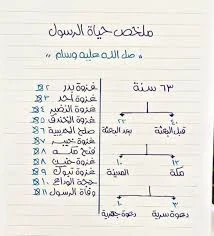 ملخص حياة الرسول
" صل الله عليه وسلم "
٦٣ سنة
٤٠ ٢٣
قبل البعثة بعد البعثة
١٣ ١٠
مكة المدينة
٣ ١٠
دعوة سرية دعوة جهرية
غزوة بدر ٢هـ
غزوة أحد ٣هـ
غزوة النضير ٤هـ
غزوة الخندق ٥هـ
صلح الحديبية ٦هـ
غزوة خيبر ٧هـ
فتح مكة ٨هـ
غزوة حنين ٨هـ
غزوة تبوك ٩هـ
حجة الوداع ١٠هـ
وفاة الرسول ١١هـ